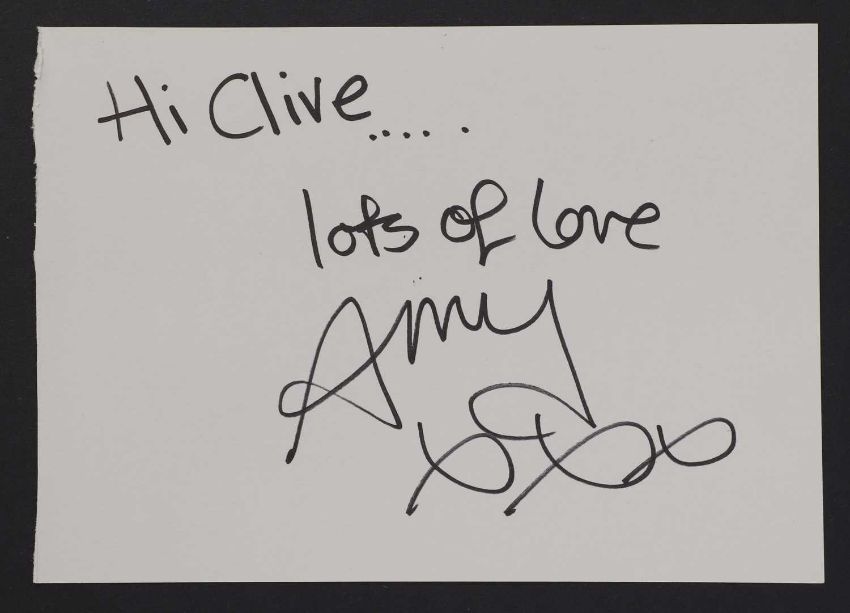 Hi Clive.....
lots of love
Amy
xxx